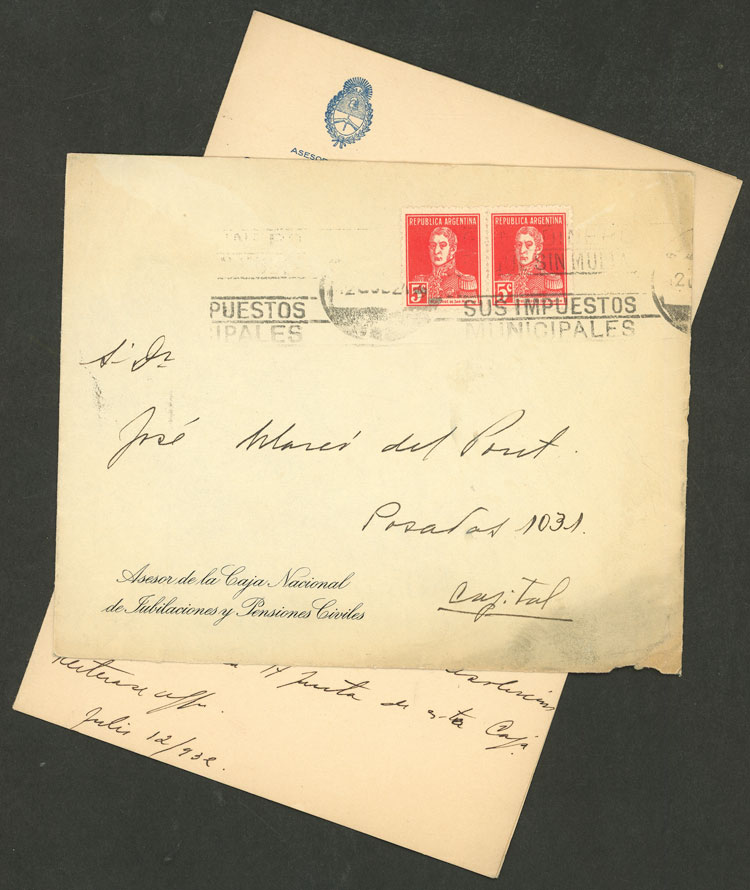 ASESOR
REPUBLICA ARGENTINA REPUBLICA ARGENTINA
5c 5c
SIN MUL
12 JUL 2
PUESTOS SUS IMPUESTOS
IPALES MUNICIPALES
S. Dr
José Marcó del Pont.
Posadas 1031.
Capital
Asesor de la Caja Nacional
de Jubilaciones y Pensiones Civiles
Junta de esta Caja.
Reitera
Julio 12/932.